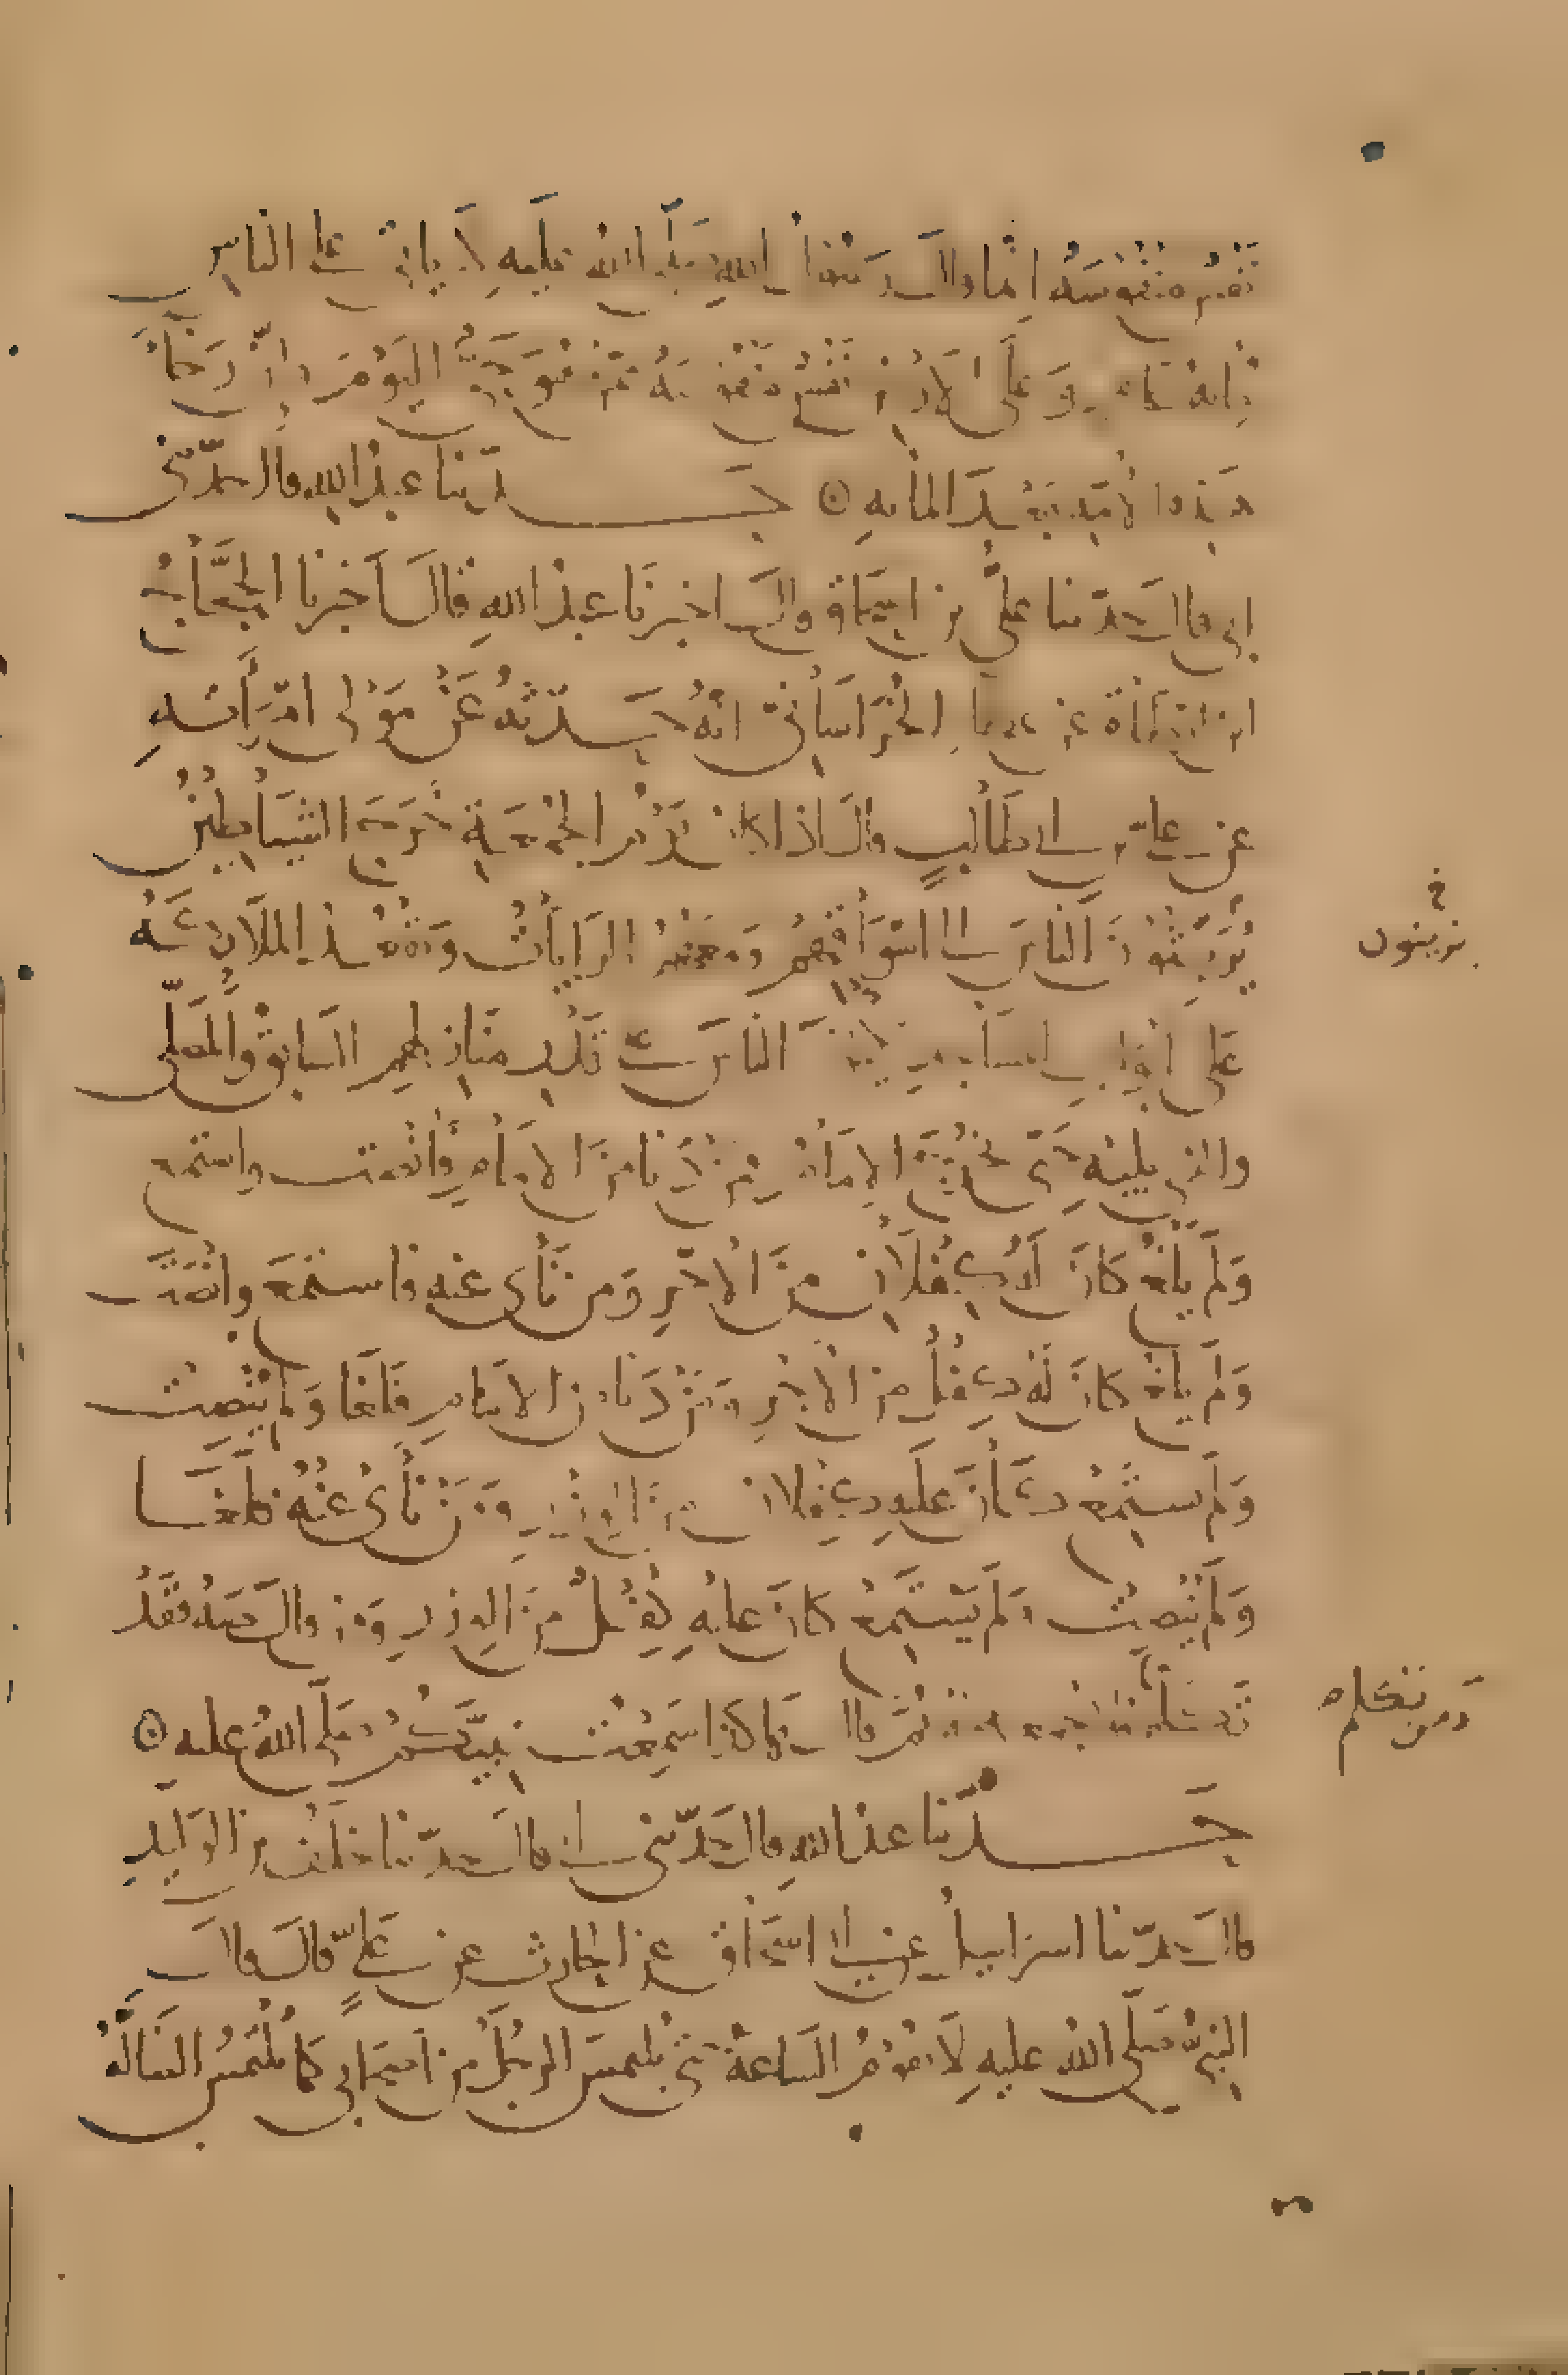 نفس منفوسة انما قال رسول الله صلى الله عليه لا ياتي على الناس
مائة عام وعلى الارض نفس منفوسة ممن هو حي اليوم وان رخا
هذه الامة بعد المائة ⊙ حدثنا عبد الله قال حدثني
ابي قال حدثنا علي بن اسحاق قال اخبرنا عبد الله قال اخبرنا الحجاج
ابن ارطاة عن عطا الخراساني انه حدثه عن مولى امرأته
عن علي بن ابي طالب قال اذا كان يوم الجمعة خرج الشياطين
يربثون الناس الى اسواقهم ومعهم الرايات وتقعد الملائكة
على ابواب المساجد يكتبون الناس على قدر منازلهم السابق والمصلي
والذي يليه حتى يخرج الامام فمن دنا من الامام فانصت واستمع
ولم يلغ كان له كفلان من الاجر ومن نأى عنه فاستمع وانصت
ولم يلغ كان له كفل من الاجر ومن دنا من الامام فلغا ولم ينصت
ولم يستمع كان عليه كفلان من الوزر ومن نأى عنه فلغا
ولم ينصت ولم يستمع كان عليه كفل من الوزر ومن قال صه فقد
تكلم فلا جمعة له ثم قال هكذا سمعت نبيكم صلى الله عليه ⊙
حدثنا عبد الله قال حدثني ابي قال حدثنا خلف بن الوليد
قال حدثنا اسرائيل عن ابي اسحاق عن الحارث عن علي قال قال
النبي صلى الله عليه لا تقوم الساعة حتى يلتمس الرجل من اصحابي كما تلتمس الضالة
يزينون
ومن تكلم